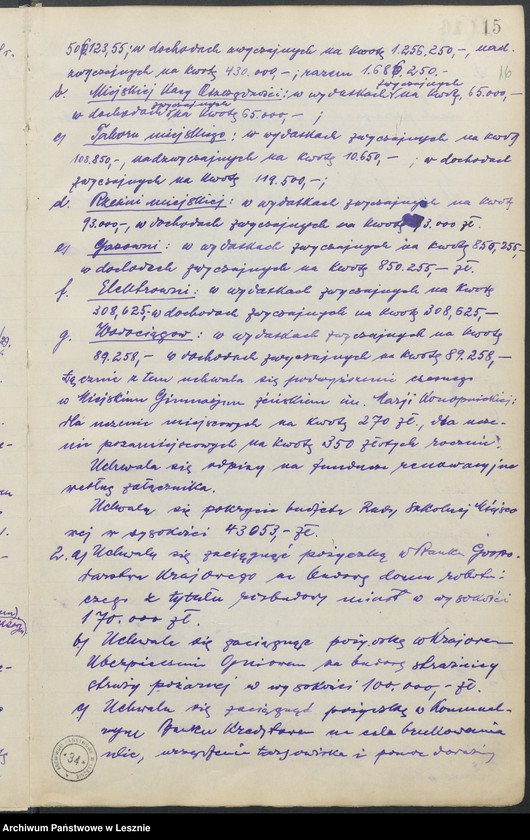 15
16
506123,55; w dochodach zwyczajnych na kwotę 1.256.250,-, nad-
zwyczajnych na kwotę 430.000,-; razem 1.686.250.-
b. Miejskiej Kasy Oszczędności: w wydatkach zwyczajnych na kwotę 65.000,-
w dochodach zwyczajnych na kwotę 65.000,- ;
c) Taboru miejskiego: w wydatkach zwyczajnych na kwotę
108.850,-, nadzwyczajnych na kwotę 10.650,- ; w dochodach
zwyczajnych na kwotę 119.500,-;
d. Rzeźni miejskiej: w wydatkach zwyczajnych na kwotę
93.000,-, w dochodach zwyczajnych na kwotę 93.000 zł.
e) Gazowni: w wydatkach zwyczajnych na kwotę 850.255,-
w dochodach zwyczajnych na kwotę 850.255,- zł.
f. Elektrowni: w wydatkach zwyczajnych na kwotę
308,625,- w dochodach zwyczajnych na kwotę 308,625,-
g. Wodociągów: w wydatkach zwyczajnych na kwotę
89.258,- w dochodach zwyczajnych na kwotę 89.258,-
Łącznie z tem uchwala się podwyższenie czesnego
w Miejskim Gimnazjum żeńskim im. Marji Konopnickiej:
dla uczenic miejscowych na kwotę 270 zł., dla ucze-
nic pozamiejscowych na kwotę 350 złotych rocznie.
Uchwala się odpisy na fundusz renowacyjne
według załącznika.
Uchwala się pokrycie budżetu Rady Szkolnej Miejsco
wej w wysokości 43053,- zł.
2. a) Uchwala się zaciągnąć pożyczkę w Banku Gospo-
darstwa Krajowego na budowę domu robotni-
czego z tytułu rozbudowy miast w wysokości
170.000 zł.
b) Uchwala się zaciągnąć pożyczkę w Krajowem
Ubezpieczeniu Ogniowem na budowę strażnicy
straży pożarnej w wysokości 100.000,- zł.
c) Uchwala się zaciągnąć pożyczkę w Komunal-
nym Banku Kredytowem na cele brukowania
ulic, urządzenia targowiska i
ARCHIWUM PAŃSTWOWE W LESZNIE
31
Archiwum Państwowe w Lesznie